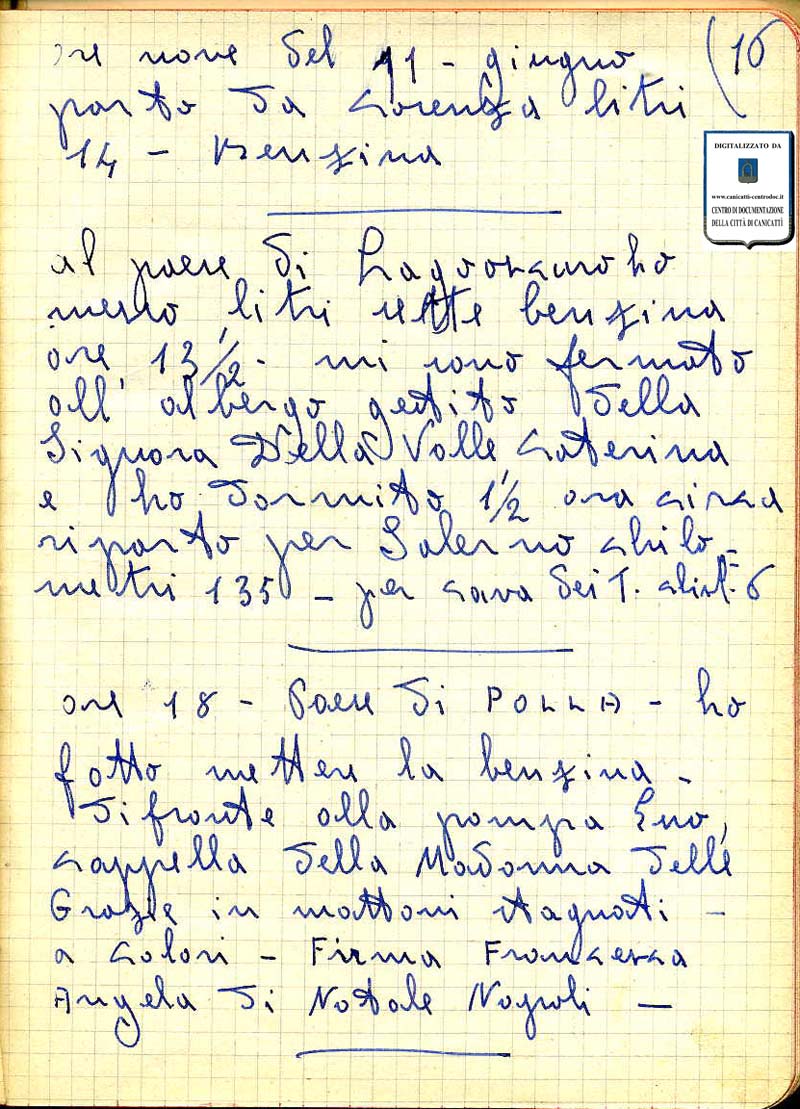 ore nove del 11 - giugno (16
parto da Cosenza litri
14 - Benzina
DIGITALIZZATO DA
www.canicatti-centrodoc.it
CENTRO DI DOCUMENTAZIONE
DELLA CITTÀ DI CANICATTÌ
al paese di ho
messo litri sette benzina
ore 13 1/2 - mi sono fermato
all' albergo gestito della
Signora Della Valle Caterina
e ho dormito 1 1/2 ora circa
riparto per Salerno chilo-
metri 135 - per Cava dei T. 6
ore 18 - Paese di POLLA - ho
fatto mettere la benzina -
difronte alla pompa
cappella della Madonna delle
Grazie in mattoni stagnati -
a colori - Firma Francesca
Angela di Natale Napoli -